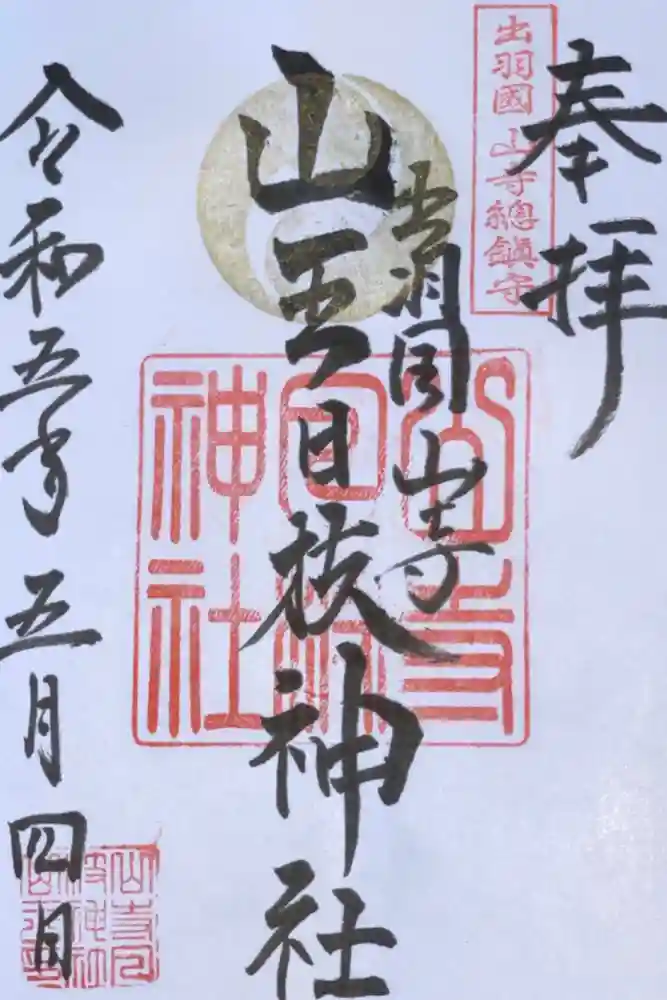 奉拝
出羽國 山寺總鎮守
出羽国 山寺
山王日枝神社
山寺日枝神社
令和五年五月四日